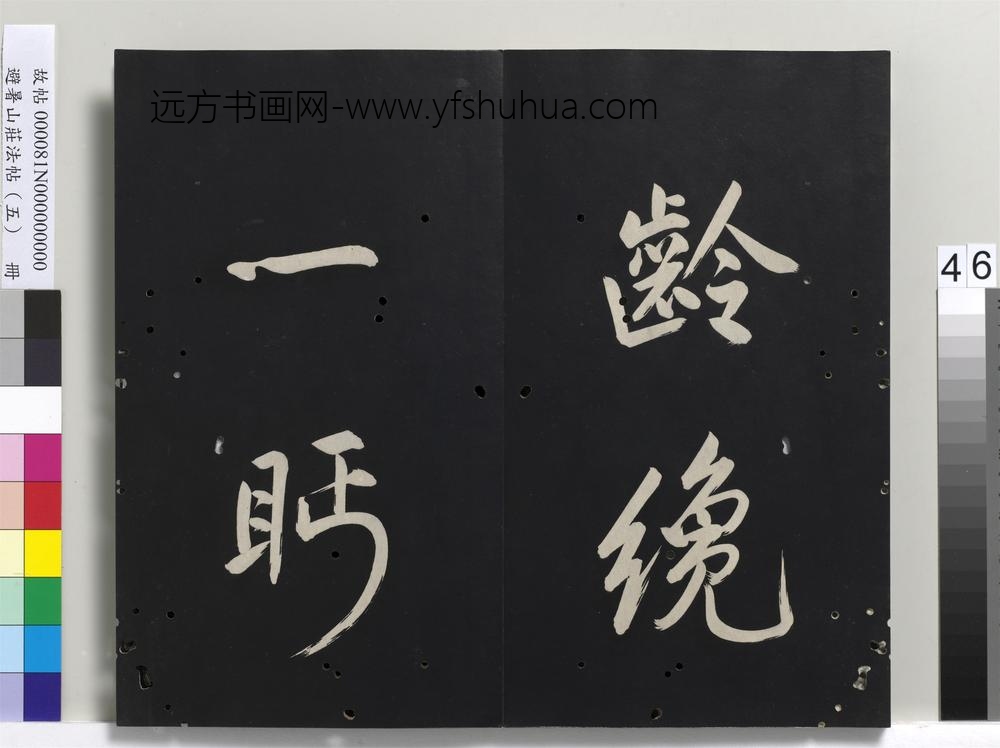 齡纔
一眄
远方书画网-www.yfshuhua.com
故帖 000081N000000000
避暑山莊法帖（五） 冊
46